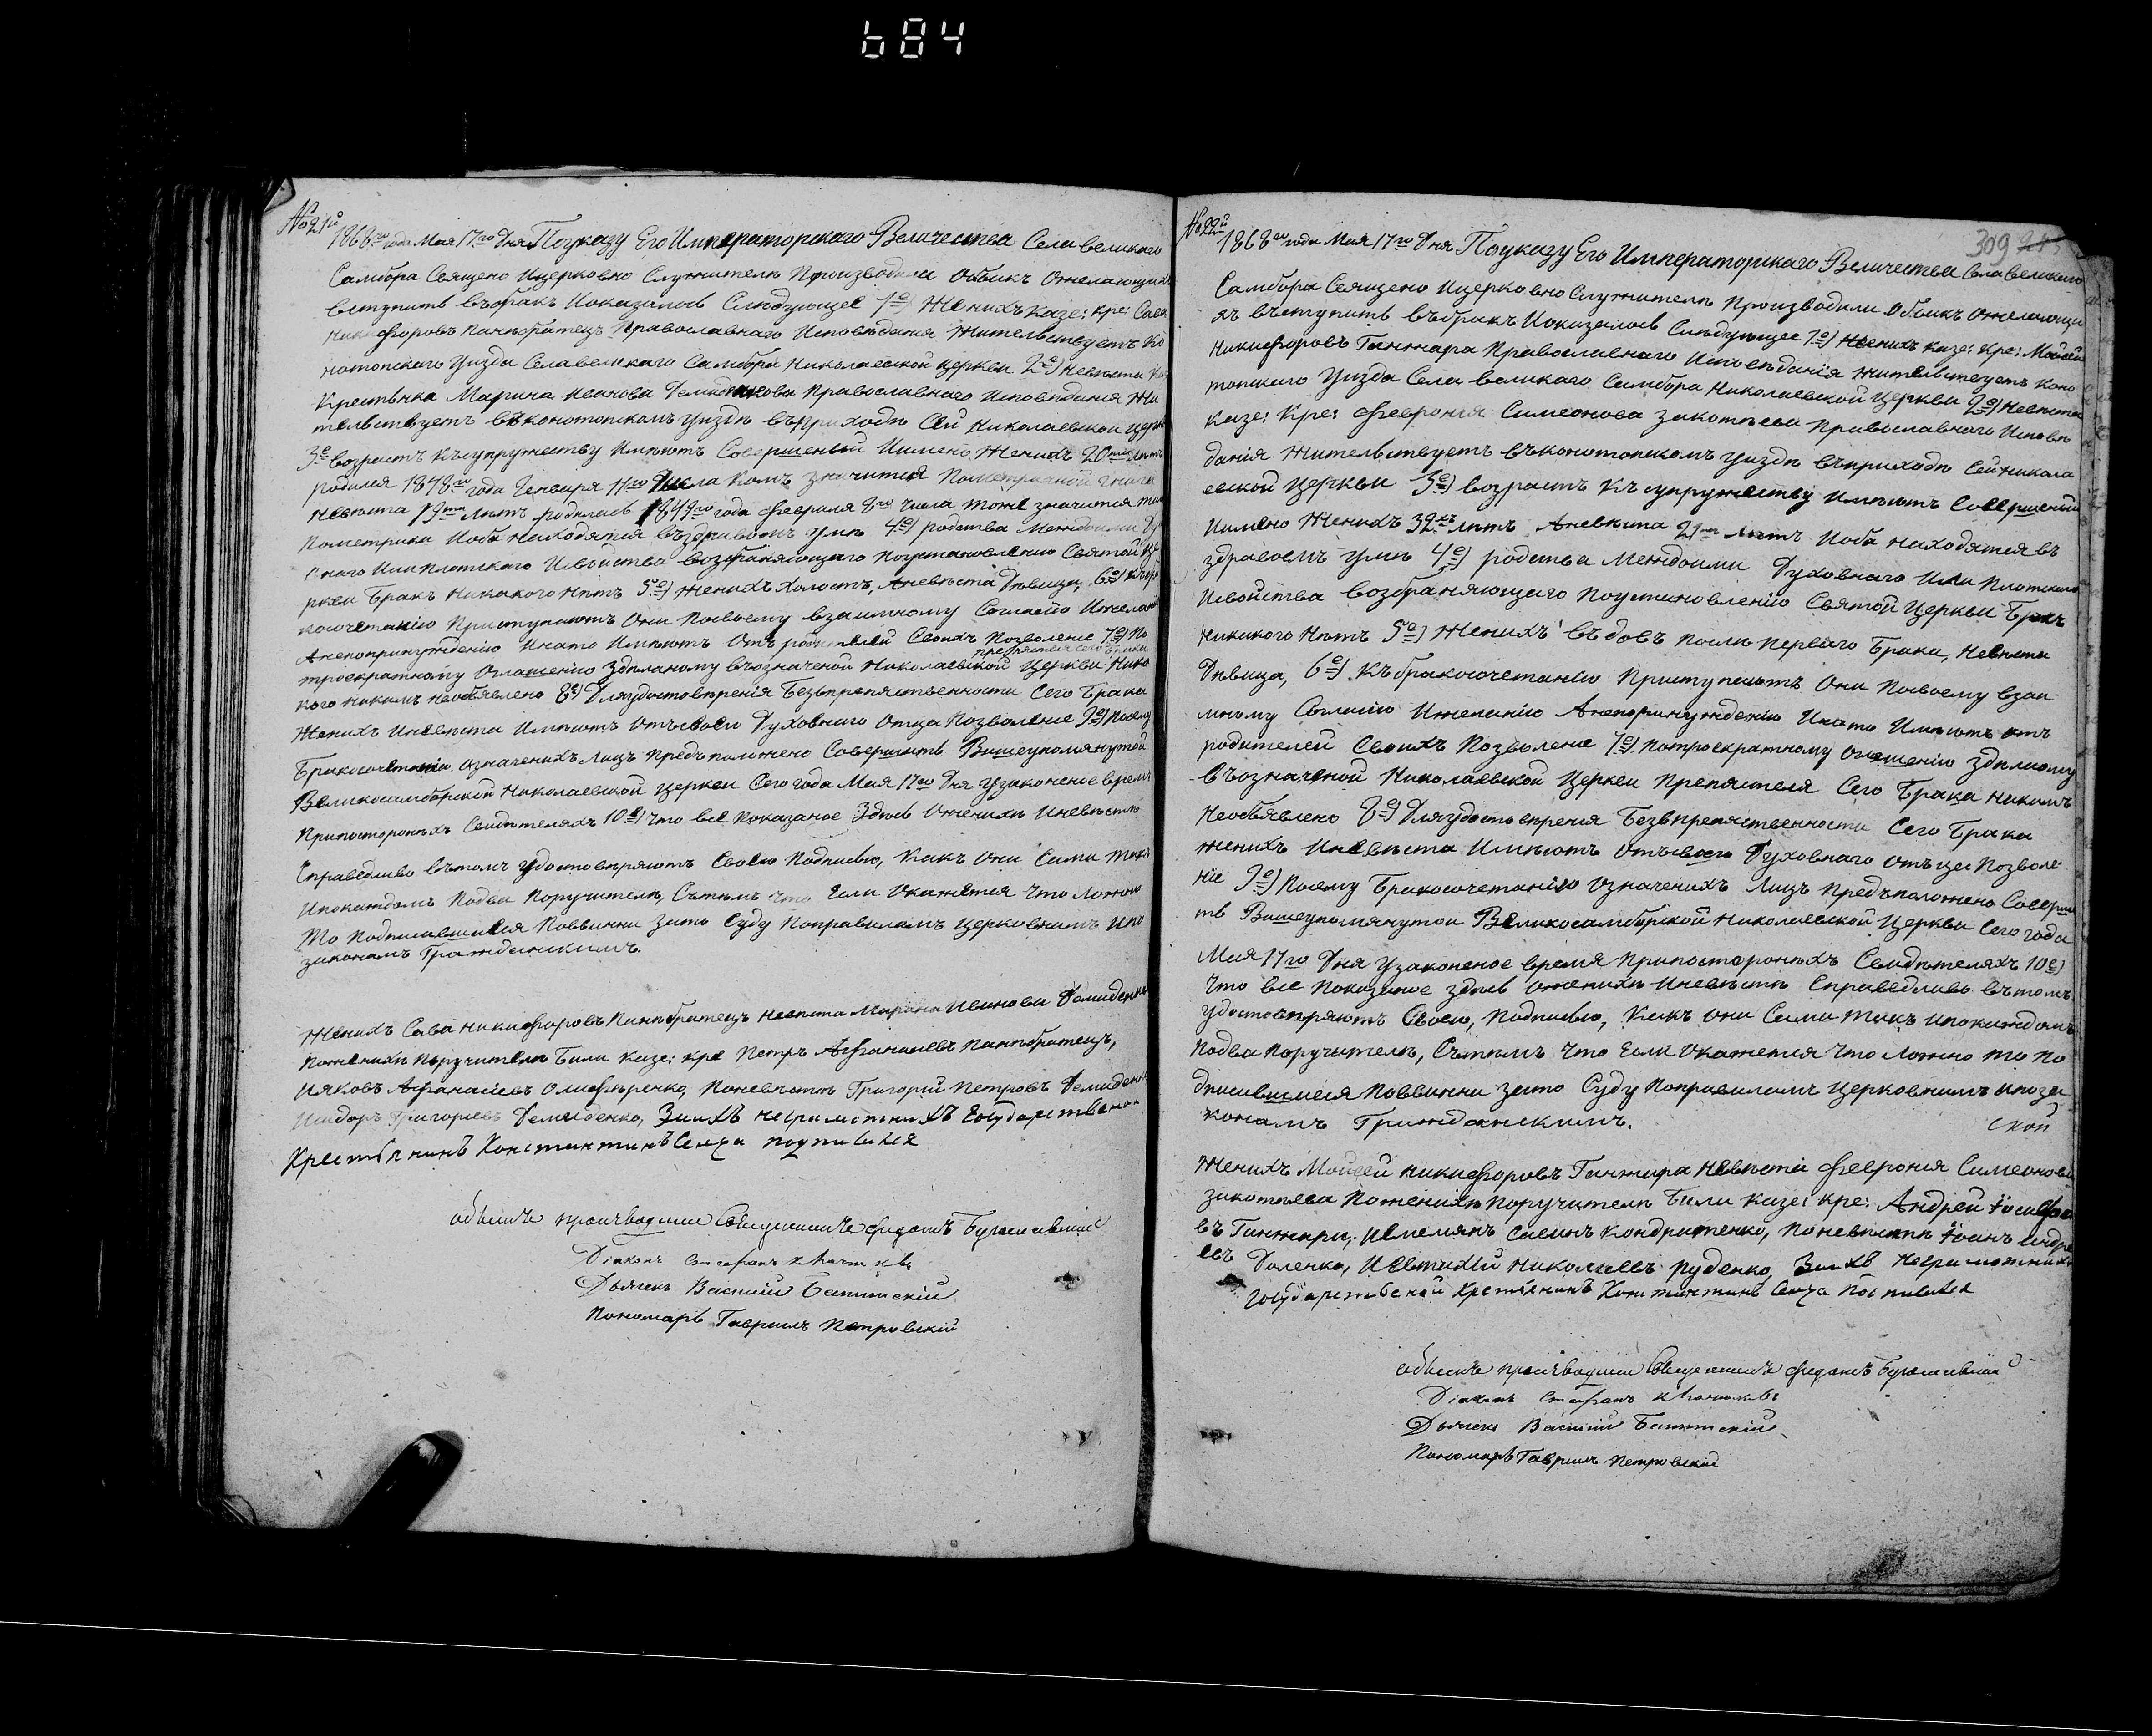 684
№ 21й
1868го года Мая 17го Дня Поуказу Его Императорскаго Величества Села великаго
Самбора Священо Ицерковно Служителѣ Производили Обыкъ Ожелающихъ
вступить въбракъ Иоказалось Слѣдующее 1е) Женихъ казе: кре: Сава
Никифоровъ Панибратецъ Православнаго Исповѣдания Жительствуетъ Ко
нотопскаго Уизда Селавеликаго Самбора Николаевской Церкви 2е) Невѣста
Крестьнка Марина Иванова Демиденкова Православнаго Исповѣдания Жи
тельствуетъ вконотопскамъ уиздѣ въприходѣ Сей Николаевской церкви
3е возрастъ Ксупружеству Имѣютъ Совершеный Иимено Женихъ 20ть лѣтъ
родился 1848го года Генваря 11го Числа Комъ значится Пометрической Книги
Невѣста 19ть Лѣтъ родилась 1849го года февраля 8го числа тоже значится
Пометрики Иоба находятся въздравомъ умѣ 4е) родства Междоими Ду
внаго Или плотскаго Исвойства возбраняющаго Поустановлению Святой Це
ркви Бракъ Никакого Нѣтъ 5е) Женихъ холостъ, Аневѣста Дѣвица, 6е) Къбра
косочетанію Приступаютъ Они Посвоему взаимному Согласію Ижеланію
Анепопринуждению Инато Имѣютъ Отъ родителей Своихъ Позволение 7е) По
препятствия сего брака
троекратному Оглашению Здѣланому въозначеной Николаевской Церкви Ника
кого никимъ необявлено 8е) Дляудостовѣрения Безвпрепятственности Сего Брака
Женихъ Иневѣста Имѣютъ Отъсвоего Духовнаго Отца Позволение 9е) Посему
Бракосочетанію означенихъ лицъ Предъположено Совершить Вишеупомянутой
Великосамборской Николаевской церкви Сего года Мая 17го Дня узаконеное время
Припостороннхъ Свидѣтеляхъ 10е) Что все Показаное Здѣсь Оженихѣ Иневѣстѣ
Справедливо втомъ удостовѣряютъ Своею Подписью, Какъ Они Сами такъ
Ипокаждомъ Подва Поручителѣ, Сътѣмъ что Если Окажется Что Ложно
То Подписавшиеся Повинни зато Суду Поправиламъ Церковнимъ Ипо
законамъ Гражданскимъ.
Женихъ Сава Никифоровъ Панибратецъ Невѣста Марина Иванова Демиденкова
Поженихѣ Поручителѣ Били казе: кре Петръ Афанасиевъ Панибратецъ,
Ияковъ Афанасиевъ Олифѣренко, Поневѣстѣ Григорий Петровъ Демиденко
Исидоръ Григориевъ Демиденко, Заихъ неграмотнихъ Государствено
Крестьянинъ Константинъ Сенча подписался
обыскъ производили Священникъ
Діаконъ Стефанъ
Дьячекъ Василий
Пономарь Гавриилъ Петровскій
№ 22й
309
1868го года Мая 17го Дня Поуказу Его Императорскаго Величества Села великаго
Самбора Священо Ицерковно Служителѣ Производили Обыкъ Ожелающи
хъ вступить въбракъ Иоказалось Слѣдующее 1е) Женихъ казе: кре: Мойсей
Никифоровъ Ганжара Православнаго Исповѣдания Жительствуетъ Коно
топскаго Уизда Села великаго Самбора Николаевской Церкви 2е) Невѣста
казе: Кре: Феврония Симеонова Православнаго Исповѣ
дания Жительствуетъ въконотопскомъ уиздѣ въприходѣ Сей Никола
евской церкви 3е) возрастъ Ксупружеству Имѣютъ Совершеный
Иимено Женихъ 32хъ лѣтъ Аневѣста 21го лѣтъ Иоба находятся въ
здравомъ умѣ 4е) родства Междоими Духовнаго Или Плотскаго
Исвойства возбраняющаго Поустановлению Святой Церкви Бракъ
Никакого Нѣтъ 5е) Женихъ въдовъ послѣ первого Брака, Невѣста
Дѣвица, 6е) Къбракосочетанію Приступаютъ Они Посвоему взаи
мному Согласию Ижеланию Анепопринуждению Инато Имѣютъ отъ
родителей Своихъ Позволение 7е) Потроекратному Оглашению здѣланому
възначеной Николаевской Церкви Препятствия Сего Брака никимъ
Необявлено 8е) Дляудостовѣрения Безвпрепятственности Сего Брака
женихъ Иневѣста Имѣютъ Отъсвоего Духовнаго отъца Позволе
ніе 9е) Посему Бракосочетанію означенихъ Лицъ Предъположено Соверши
ть Вишеупомянутой Великосамборской Николаевской Церкви Сего года
Мая 17го Дня узаконеное время Припостороннхъ Свидѣтеляхъ 10е)
Что все Показаное здѣсь оженихѣ Иневѣстѣ Справедливо въ томъ
удостовѣряютъ Своею, Подписью, Какъ они Сами такъ ипокаждомъ
Подва Поручителѣ, Сътѣмъ что Если Окажется Что ложно то По
дписавшиеся Повинни зато Суду Поправиламъ Церковнимъ ипоза
конамъ Гражданскимъ.
Женихъ Мойсей Никифоровъ Ганжара Невѣста Феврония Симеонова
Поженихѣ Поручителѣ Били казе: кре: Андрей Іосифо
въ Ганжара, Иемелянъ Савинъ Кондратенко, Поневѣстѣ Іоанъ Андре
евъ Доленко, Иевтихий Николаевъ Руденко, Заихъ Неграмотнихъ
Государственой Крестьянинъ Константинъ Сенча
обыскъ производили Священникъ
Діаконъ Стефанъ
Дьячекъ Василий
Пономарь Гавриилъ Петровский